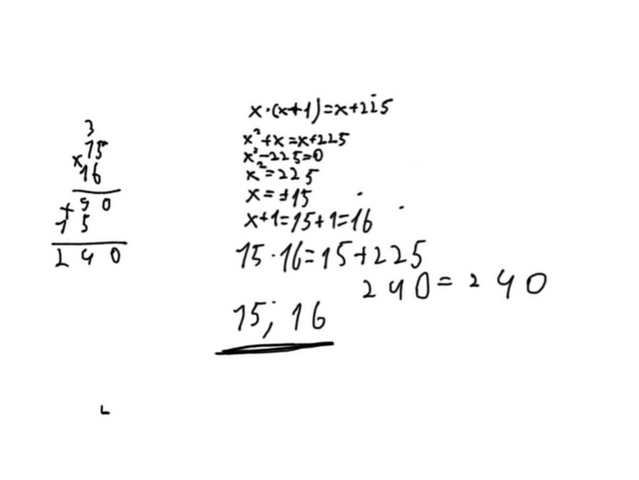 3
×15
16
+90
15
240
x·(x+1)=x+225
x²+x=x+225
x²-225=0
x²=225
x=±15
x+1=15+1=16
15·16=15+225
240=240
15; 16